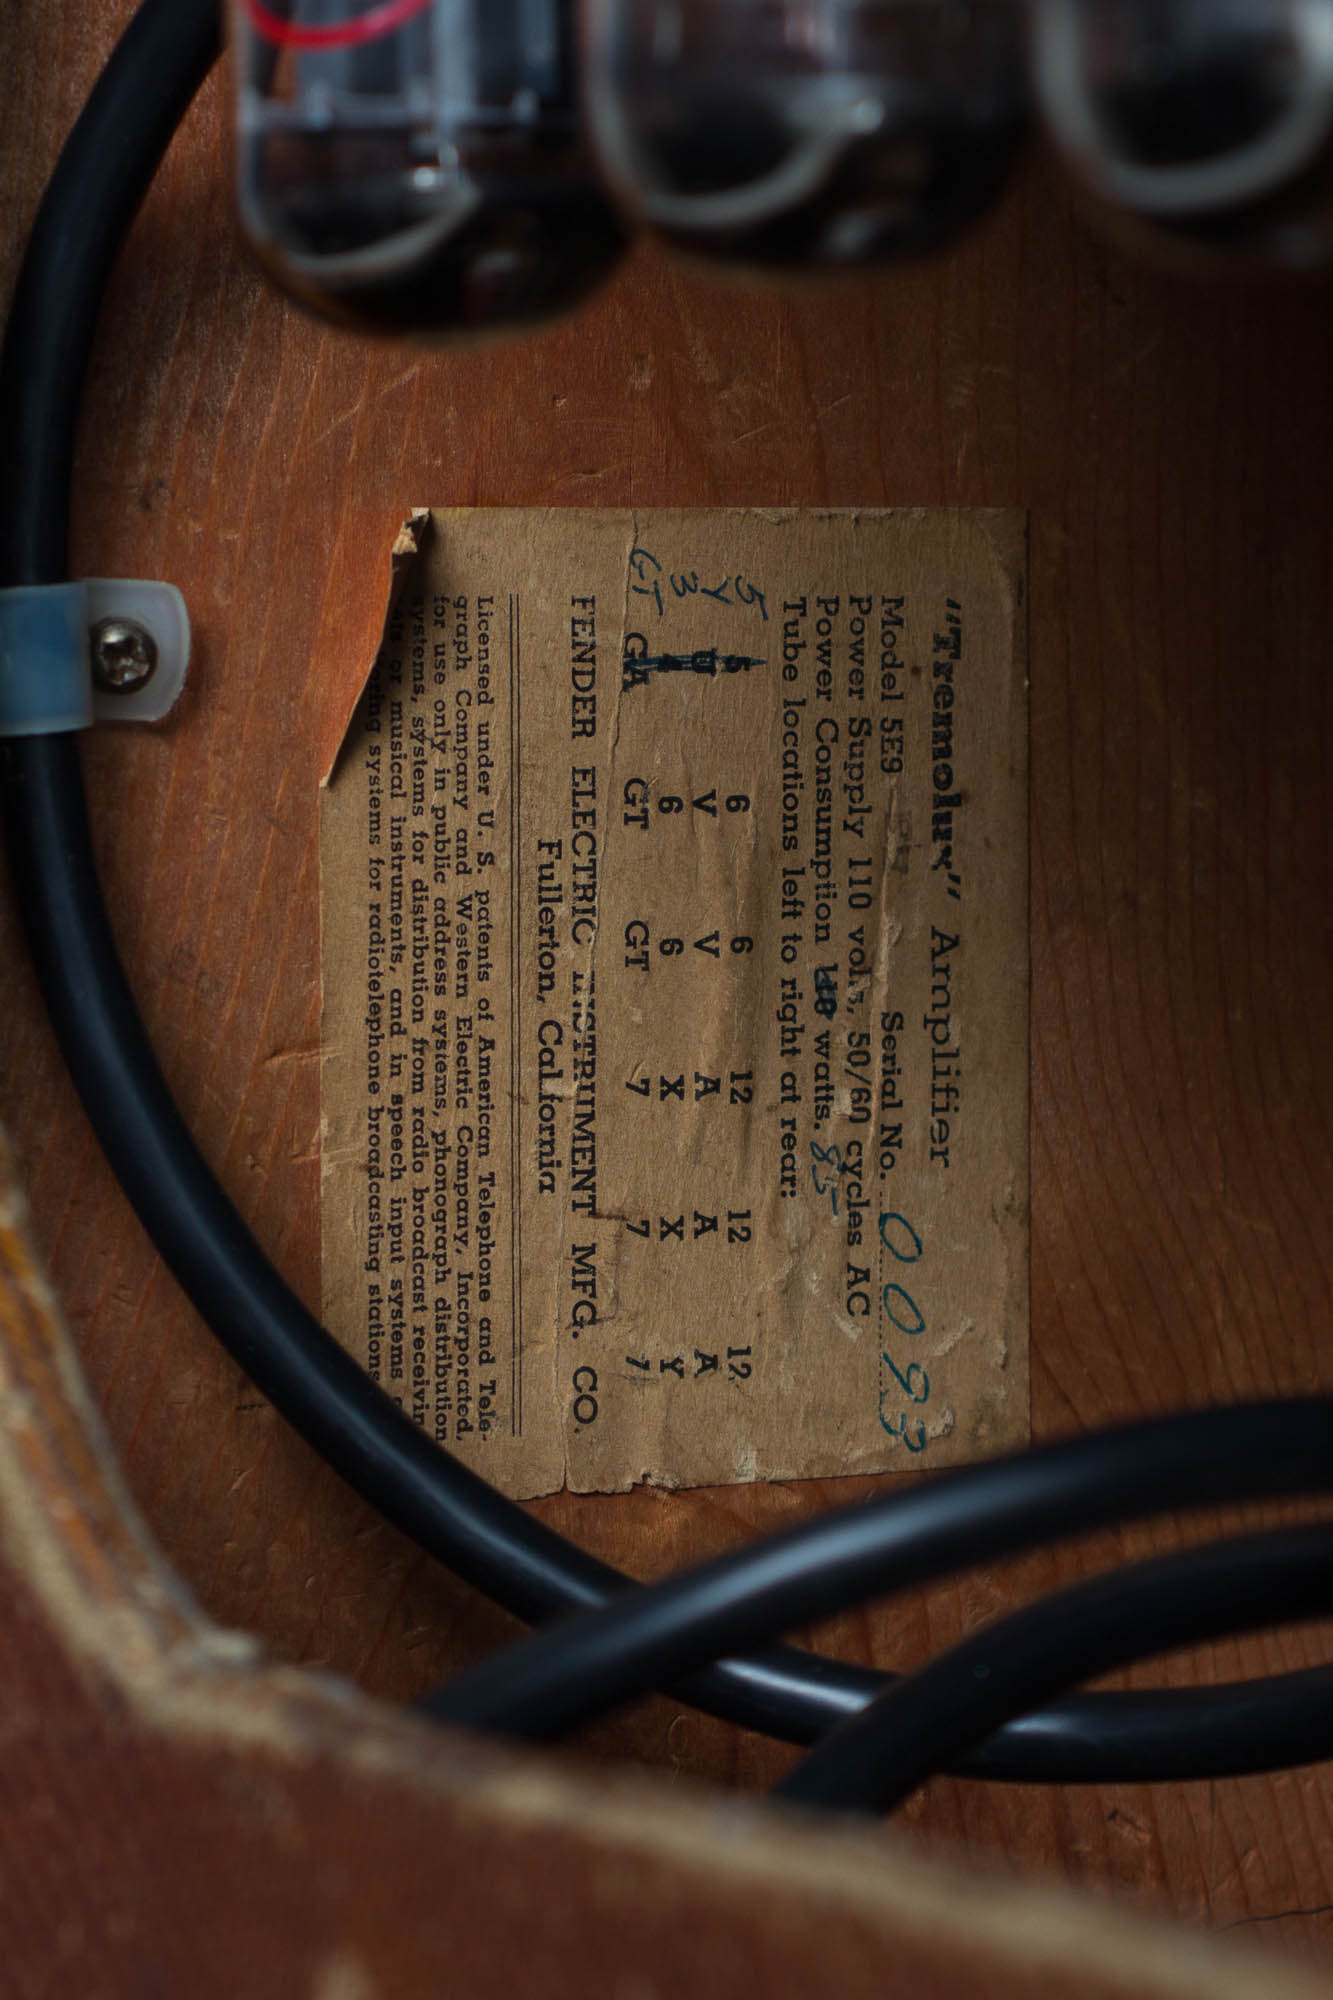 "Tremolux" Amplifier
Model 5E9 Serial No. 0083
Power Supply 110 volts, 50/60 cycles AC
Power Consumption watts. 85
Tube locations left to right at rear:
5 5 6 6 12 12 12
Y U V V A A A
3 4 6 6 X X Y
GT GA GT GT 7 7 7
FENDER ELECTRIC INSTRUMENT MFG. CO.
Fullerton, California
Licensed under U. S. patents of American Telephone and Tele-
graph Company and Western Electric Company, Incorporated,
for use only in public address systems, phonograph distribution
systems, systems for distribution from radio broadcast receivin
or musical instruments, and in speech input systems
systems for radiotelephone broadcasting stations